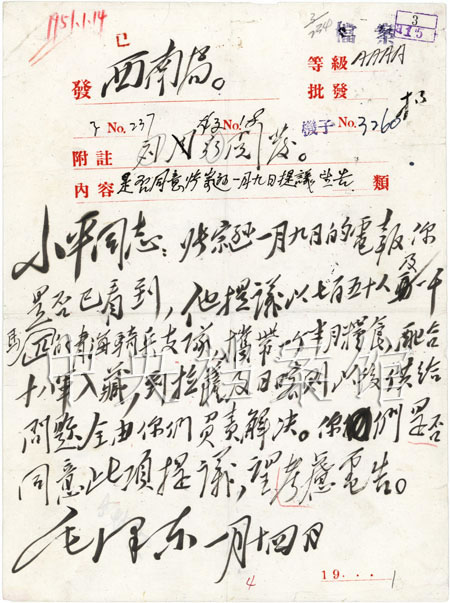 1951.1.14
已
檔案
3
發 西南局。
等級 AAAA
批發
No. 237
No.
機子 No. 3260
附註
發。
內容 是否同意張宗遜一月九日提議望告 類
小平同志：張宗遜一月九日的電報你
是否已看到，他提議以七百五十人及馬一千
匹的青海騎兵支隊，携帶半月糧食，配合
十八軍入藏，到拉薩及日喀則以後供給
問題全由你們負責解决。你們是否
同意此項提議，望考慮電告。
毛澤東 一月十四日
4
19...1
中央檔案館